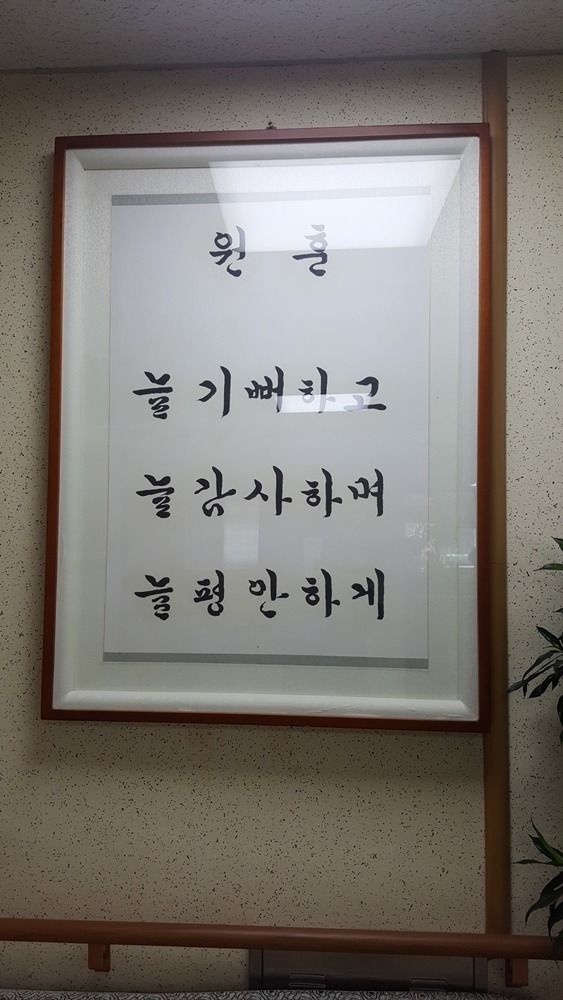 원 훈
늘 기뻐하고
늘 감사하며
늘 평안하게